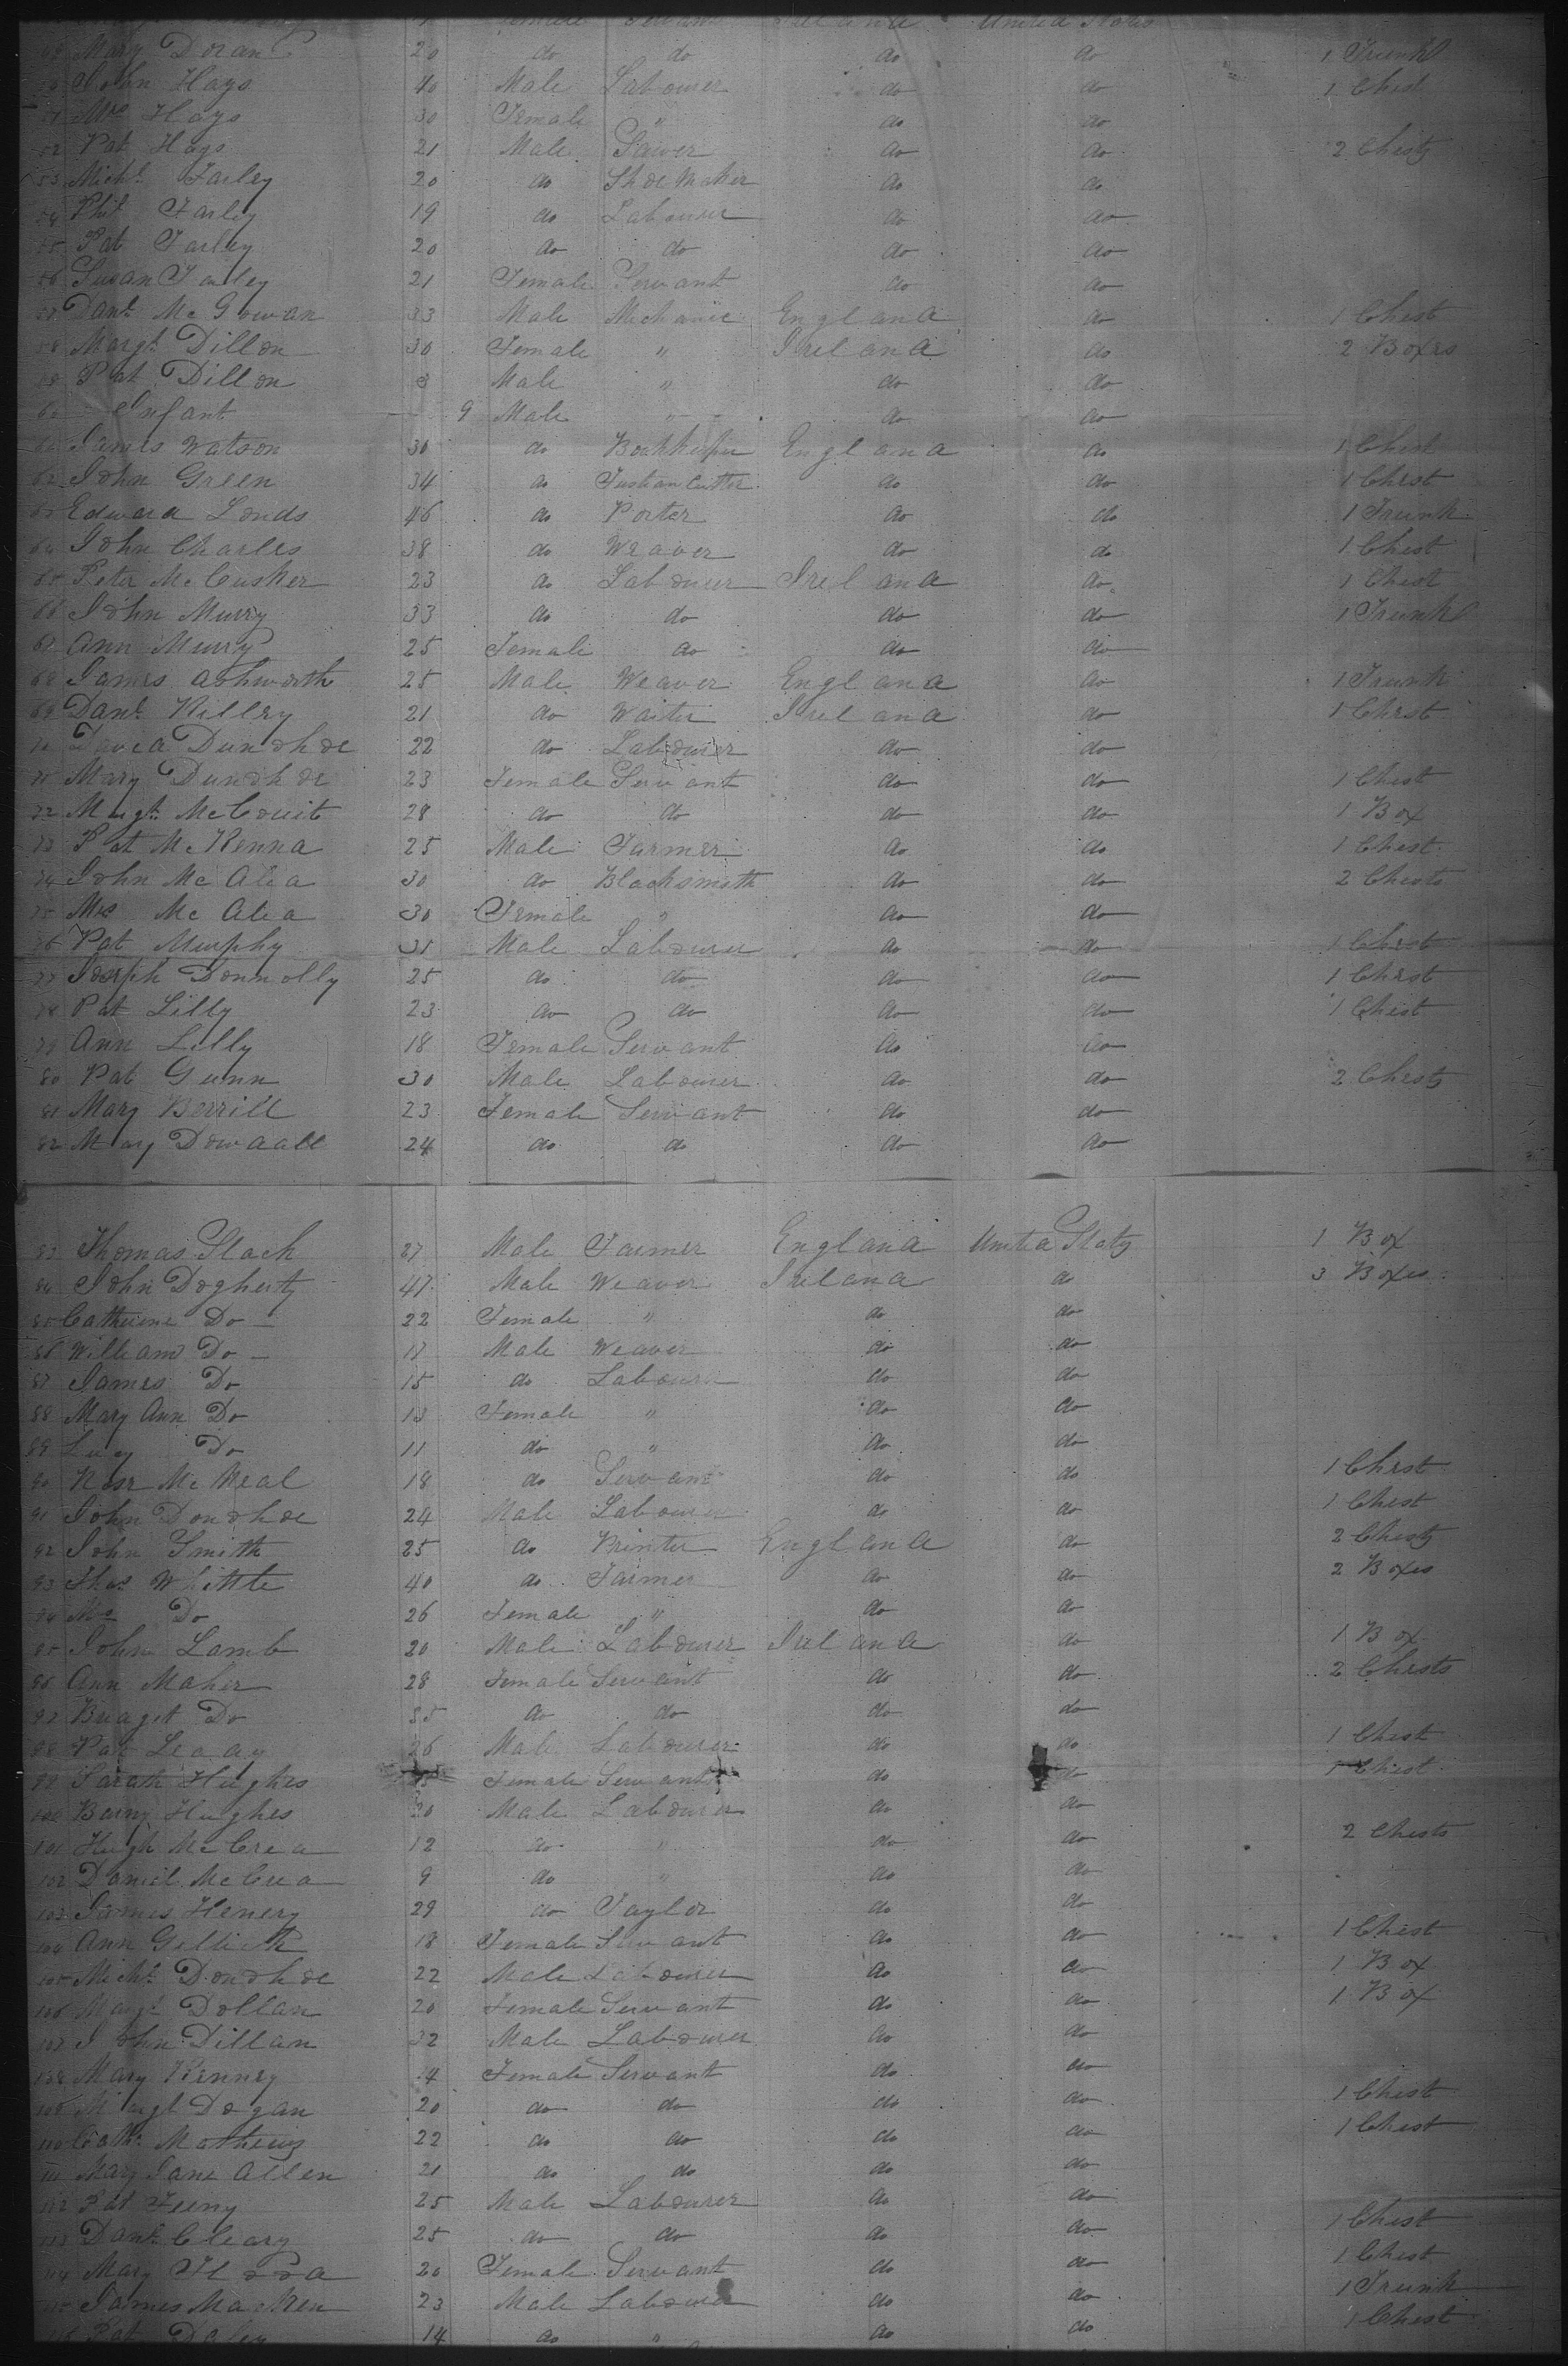 Female Servant Ireland United States
49 Mary Doran 20 do do do do 1 Trunk
50 John Hays 40 Male Labourer do do 1 Chest
51 Mrs Hays 30 Female " do do
52 Pat Hays 21 Male Sawer do do 2 Chests
53 Michl. Farley 20 do Shoe Maker do do
54 Phil Farley 19 do Labourer do do
55 Pat Farley 20 do do do do
56 Susan Farley 21 Female Servant do do
57 Danl. McGowan 33 Male Mechanic England do 1 Chest
58 Margt. Dillon 30 Female " Ireland do 2 Boxes
59 Pat Dillon 3 Male " do do
60 Infant 9 Male " do do
61 James Watson 30 do Bookkeeper England do 1 Chest
62 John Green 34 do Fustian Cutter do do 1 Chest
63 Edward Londs 46 do Porter do do 1 Trunk
64 John Charles 38 do Weaver do do 1 Chest
65 Peter McCusker 23 do Labourer Ireland do 1 Chest
66 John Murry 33 do do do do 1 Trunk
67 Ann Murry 25 Female do do do
68 James Ashworth 25 Male Weaver England do 1 Trunk
69 Danl. Killey 21 do Waiter Ireland do 1 Chest
70 David Dundhoe 22 do Labourer do do
71 Mary Dundhoe 23 Female Servant do do 1 Chest
72 Margt. McCourt 28 do do do do 1 Box
73 Pat McKenna 25 Male Farmer do do 1 Chest
74 John McAlea 30 do Blacksmith do do 2 Chests
75 Mrs McAlea 30 Female " do do
76 Pat Murphy 31 Male Labourer do do 1 Chest
77 Joseph Donnolly 25 do do do do 1 Chest
78 Pat Lilly 23 do do do do 1 Chest
79 Ann Lilly 18 Female Servant do do
80 Pat Gunn 30 Male Labourer do do 2 Chests
81 Mary Berrill 23 Female Servant do do
82 Mary Dowdall 24 do do do do
83 Thomas Slack 27 Male Farmer England United States 1 Box
84 John Dogherty 47 Male Weaver Ireland do 3 Boxes
85 Catherine Do 22 Female " do do
86 William Do 17 Male Weaver do do
87 James Do 15 do Labourer do do
88 Mary Ann Do 13 Female " do do
89 Lucy Do 11 do " do do
90 McNeal 18 do Servant do do 1 Chest
91 John Donohoe 24 Male Labourer do do 1 Chest
92 John Smith 25 do Printer England do 2 Chests
93 Thos. Whittle 40 do Farmer do do 2 Boxes
94 Mrs Do 26 Female " do do
95 John Lamb 20 Male Labourer Ireland do 1 Box
96 Ann Maher 28 Female Servant do do 2 Chests
97 Bridget Do 35 do do do do
98 Pat Leddy 26 Male Labourer do do 1 Chest
99 Sarah Hughes Female Servant do do 1 Chest
100 Barny Hughes 20 Male Labourer do do
101 Hugh McCrea 12 do " do do 2 Chests
102 Daniel McCrea 9 do " do do
103 James Henery 29 do Taylor do do
104 Ann Gellick 18 Female Servant do do 1 Chest
105 Michl. Donohoe 22 Male Labourer do do 1 Box
106 Margt. Dollan 20 Female Servant do do 1 Box
107 John Dillan 32 Male Labourer do do
108 Mary Kenney Female Servant do do
109 Margt Dogan 20 do do do do 1 Chest
110 Cath. Mathews 22 do do do do 1 Chest
111 Mary Jane Allen 21 do do do do
112 Pat Feeny 25 Male Labourer do do
113 Danl. Cleary 25 do do do do 1 Chest
114 Mary Flood 20 Female Servant do do 1 Chest
115 James Macken 23 Male Labourer do do 1 Trunk
116 Pat Daley 14 do " do do 1 Chest